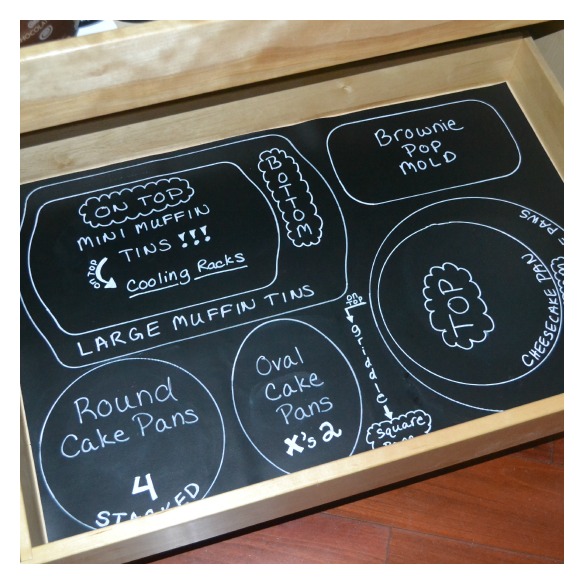 ON TOP
MINI MUFFIN
TINS !!!
so TOP
Cooling Racks
BOTTOM
LARGE MUFFIN TINS
Brownie
POP
MOLD
TOP
CHEESECAKE PAN
PANS
on
TOP
griddle
square
Round
Cake Pans
4
STACKED
Oval
Cake
Pans
X's 2